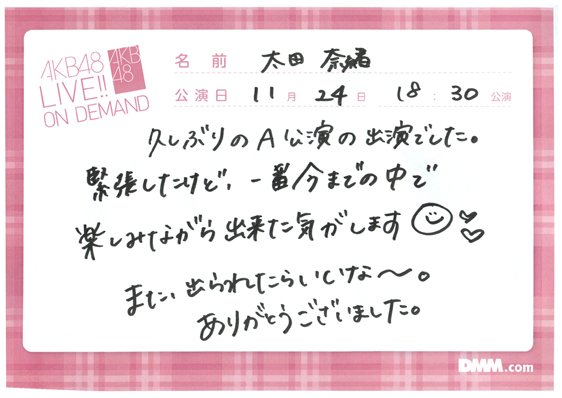 AKB48
LIVE!!
ON DEMAND
AKB
48
名前 太田 奈緒
公演日 11月 24日 18:30公演
久しぶりのA公演の出演でした。
緊張したけど、一番今までの中で
楽しみながら出来た気がします
また、出られたらいいな〜。
ありがとうございました。
DMM.com